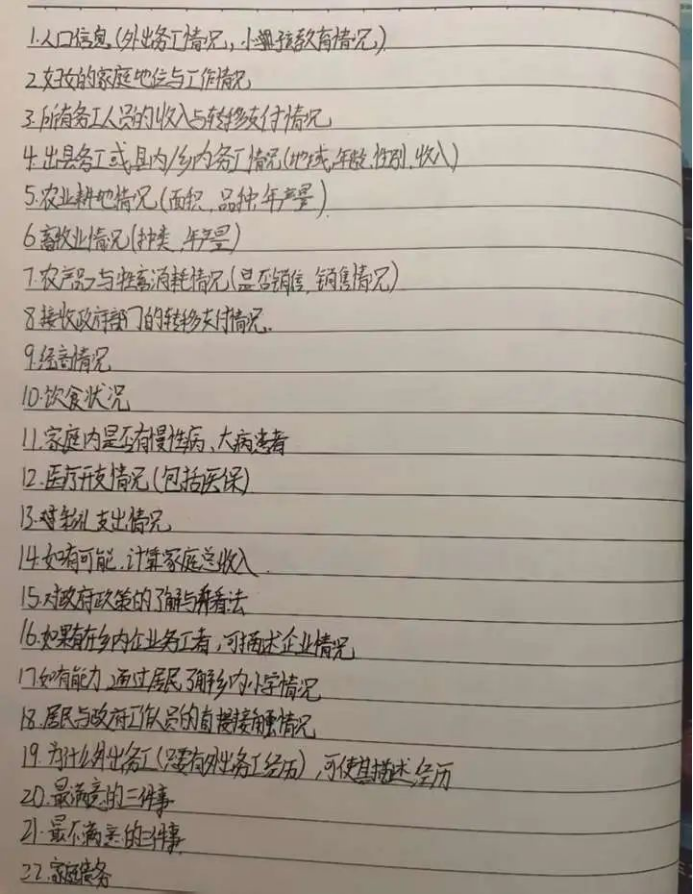 1.人口信息(外出务工情况,小孩子教育情况)
2.妇女的家庭地位与工作情况
3.所有务工人员的收入与转移支付情况
4.出县务工或县内/乡内务工情况(地域.年龄.性别.收入)
5.农业耕地情况(面积.品种.年产量)
6.畜牧业情况(种类.年产量)
7.农产品与牲畜消耗情况(是否销售.销售情况)
8.接收政府部门的转移支付情况.
9.经商情况
10.饮食状况
11.家庭内是否有慢性病、大病患者
12.医疗开支情况(包括医保)
13.对彩礼支出情况
14.如有可能.计算家庭总收入
15.对政府政策的了解与看法
16.如果有在乡内企业务工者,可描述企业情况
17.如有能力.通过居民了解乡内小学情况
18.居民与政府工作人员的直接接触情况
19.为什么外出务工(只要有外出务工经历),可使其描述经历
20.最满意的三件事
21.最不满意的三件事
22.家庭债务